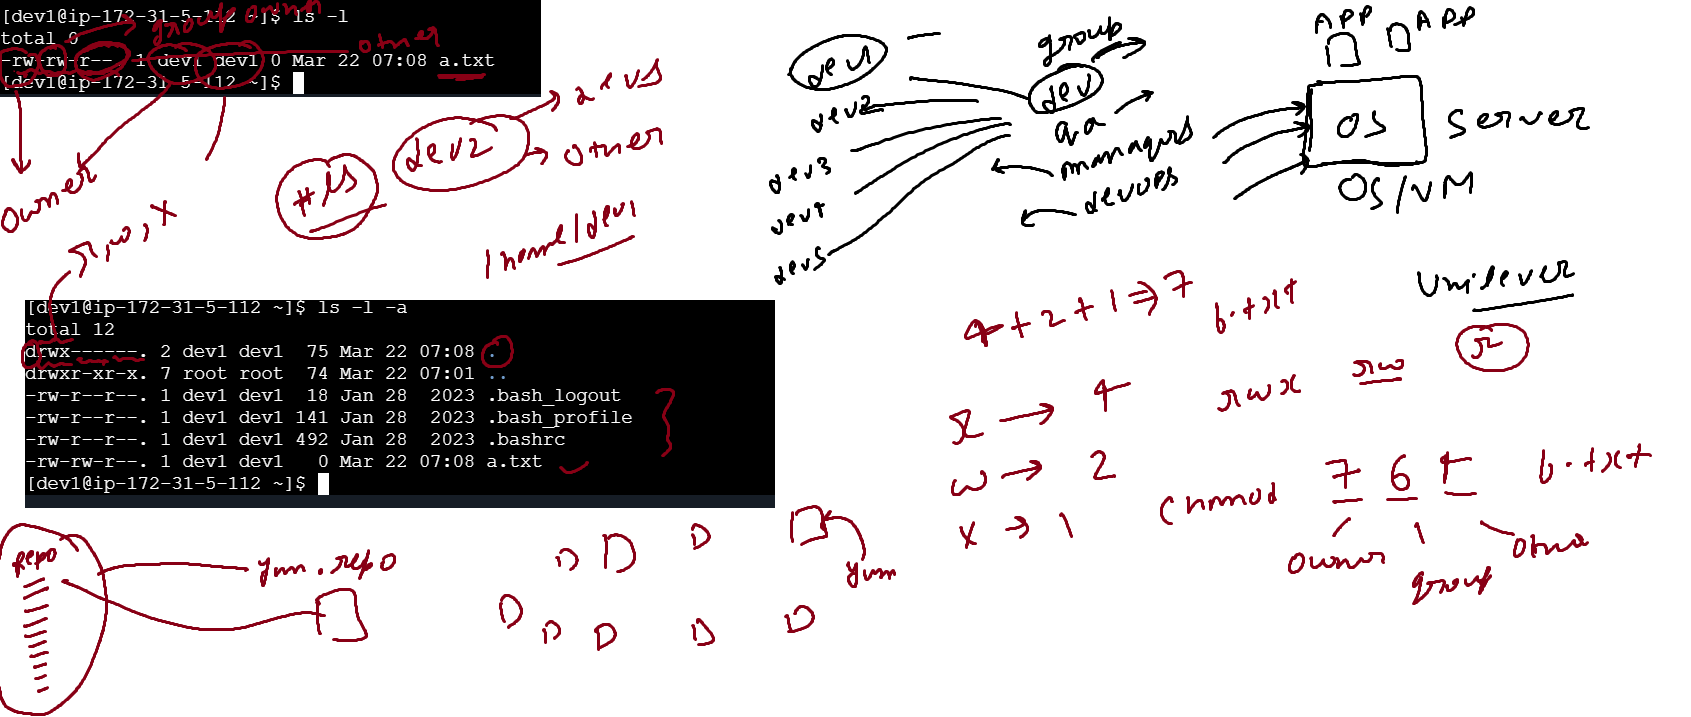 [dev1@ip-172-31-5-112 ~]$ ls -l
total 0
-rw-rw-r-- 1 dev1 dev1 0 Mar 22 07:08 a.txt
[dev1@ip-172-31-5-112 ~]$
group owner
other
owner
r, w, x
# ls
dev2
devs
other
/home/dev1
[dev1@ip-172-31-5-112 ~]$ ls -l -a
total 12
drwx------. 2 dev1 dev1  75 Mar 22 07:08 .
drwxr-xr-x. 7 root root  74 Mar 22 07:01 ..
-rw-r--r--. 1 dev1 dev1  18 Jan 28  2023 .bash_logout
-rw-r--r--. 1 dev1 dev1 141 Jan 28  2023 .bash_profile
-rw-r--r--. 1 dev1 dev1 492 Jan 28  2023 .bashrc
-rw-rw-r--. 1 dev1 dev1   0 Mar 22 07:08 a.txt
[dev1@ip-172-31-5-112 ~]$
Repo
yum.repo
yum
dev1
dev2
dev3
dev4
dev5
group
dev
qa
managers
devops
APP
APP
OS
Server
OS/VM
Unilever
4+2+1 => 7
b.txt
r → 4
w → 2
x → 1
rwx
rw
r
chmod 7 6 4 b.txt
owner
group